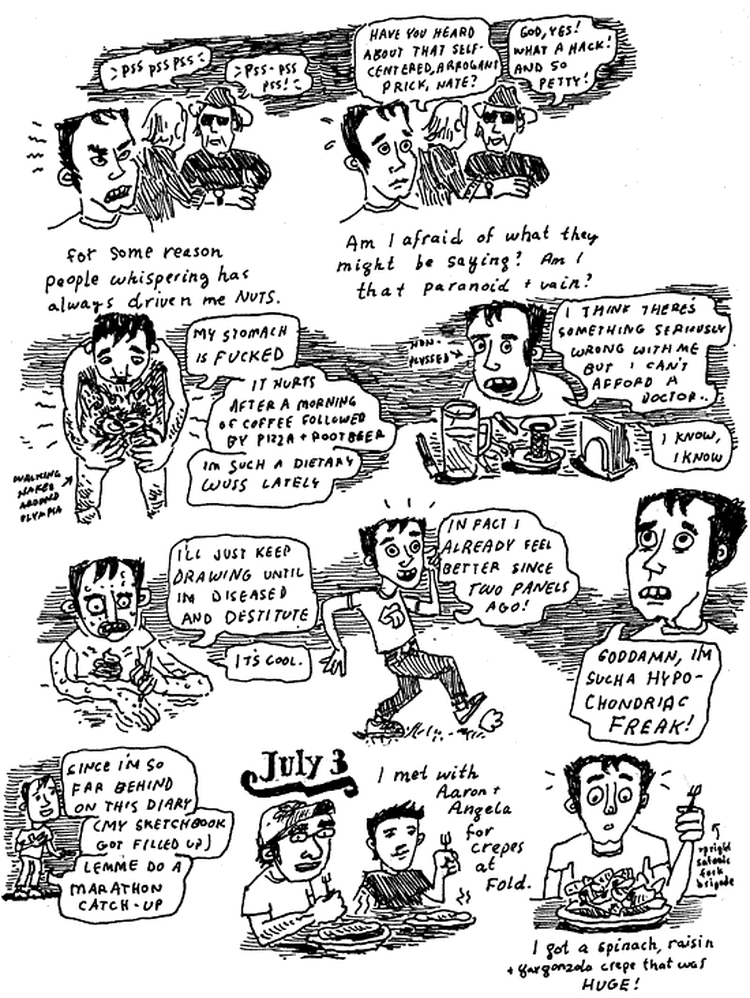 PSS PSS PSS
PSS-PSS
PSS!
HAVE YOU HEARD
ABOUT THAT SELF-
CENTERED, ARROGANT
PRICK, NATE?
GOD, YES!
WHAT A HACK!
AND SO
PETTY!
for some reason
people whispering has
always driven me NUTS.
Am I afraid of what they
might be saying? Am I
that paranoid + vain?
MY STOMACH
IS FUCKED
IT HURTS
AFTER A MORNING
OF COFFEE FOLLOWED
BY PIZZA + ROOTBEER
I'M SUCH A DIETARY
WUSS LATELY
WALKING
NAKED
AROUND
OLYMPIA
NON-
PLUSSED
I THINK THERE'S
SOMETHING SERIOUSLY
WRONG WITH ME
BUT I CAN'T
AFFORD A
DOCTOR..
I KNOW,
I KNOW
I'LL JUST KEEP
DRAWING UNTIL
I'M DISEASED
AND DESTITUTE
IT'S COOL.
IN FACT I
ALREADY FEEL
BETTER SINCE
TWO PANELS
AGO!
GODDAMN, I'M
SUCH A HYPO-
CHONDRIAC
FREAK!
SINCE I'M SO
FAR BEHIND
ON THIS DIARY
(MY SKETCHBOOK
GOT FILLED UP)
LEMME DO A
MARATHON
CATCH-UP
July 3
I met with
Aaron +
Angela
for
crepes
at
Fold.
upright
satanic
fork
brigade
I got a spinach, raisin
+ gargonzola crepe that was
HUGE!